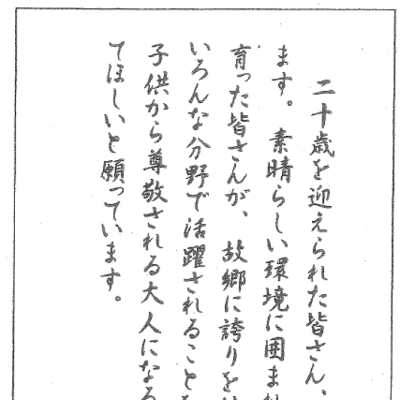 二十歳を迎えられた皆さん、
ます。素晴らしい環境に囲まれ
育った皆さんが、故郷に誇りを
いろんな分野で活躍されることを
子供から尊敬される大人になる
てほしいと願っています。